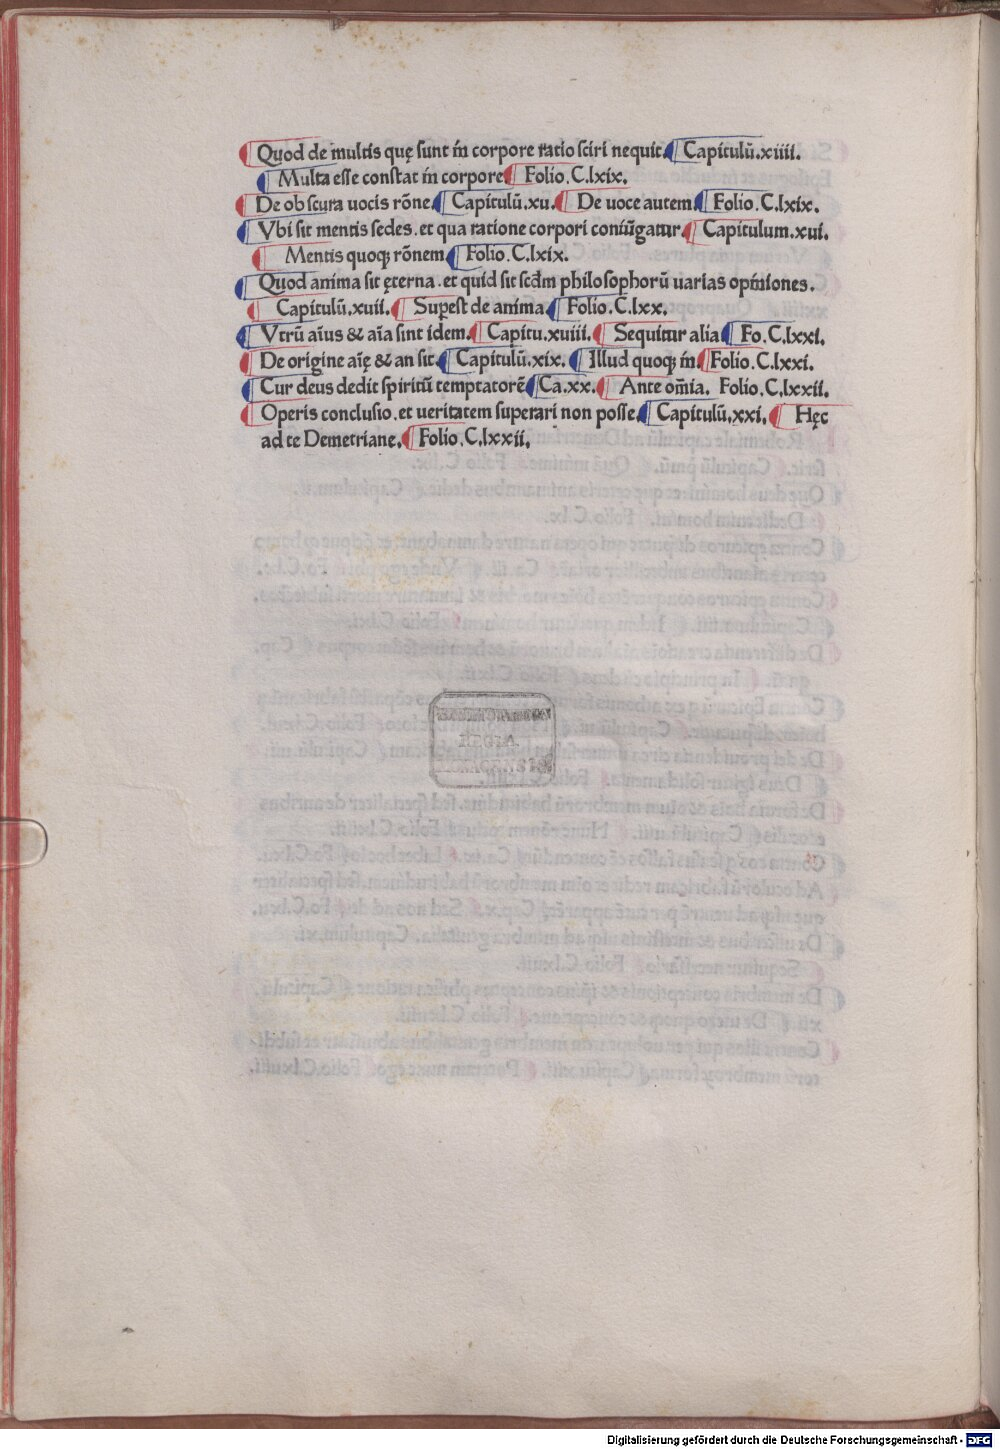 Quod de multis quę sunt in corpore ratio sciri nequit. Capitulū.xiiii.
Multa esse constat in corpore Folio.C.lxix.
De obscura uocis rōne. Capitulū.xu. De uoce autem. Folio.C.lxix.
Vbi sit mentis sedes.et qua ratione corpori coniūgatur. Capitulum.xui.
Mentis quoqꝫ rōnem Folio.C.lxix.
Quod anima sit ęterna.et quid sit scd̄m philosophorū uarias opiniones.
Capitulū.xuii. Supest de anima. Folio.C.lxx.
Vtrū aīus & aīa sint idem. Capitu.xuiii. Sequitur alia Fo.C.lxxi.
De origine aīę & an sit. Capitulū.xix. Illud quoqꝫ in Folio.C.lxxi.
Cur deus dedit spiritū temptatorē Ca.xx. Ante om̄ia. Folio.C.lxxii.
Operis conclusio.et ueritatem superari non posse. Capitulū.xxi. Hęc
ad te Demetriane. Folio.C.lxxii.
REGIA
Digitalisierung gefördert durch die Deutsche Forschungsgemeinschaft - DFG